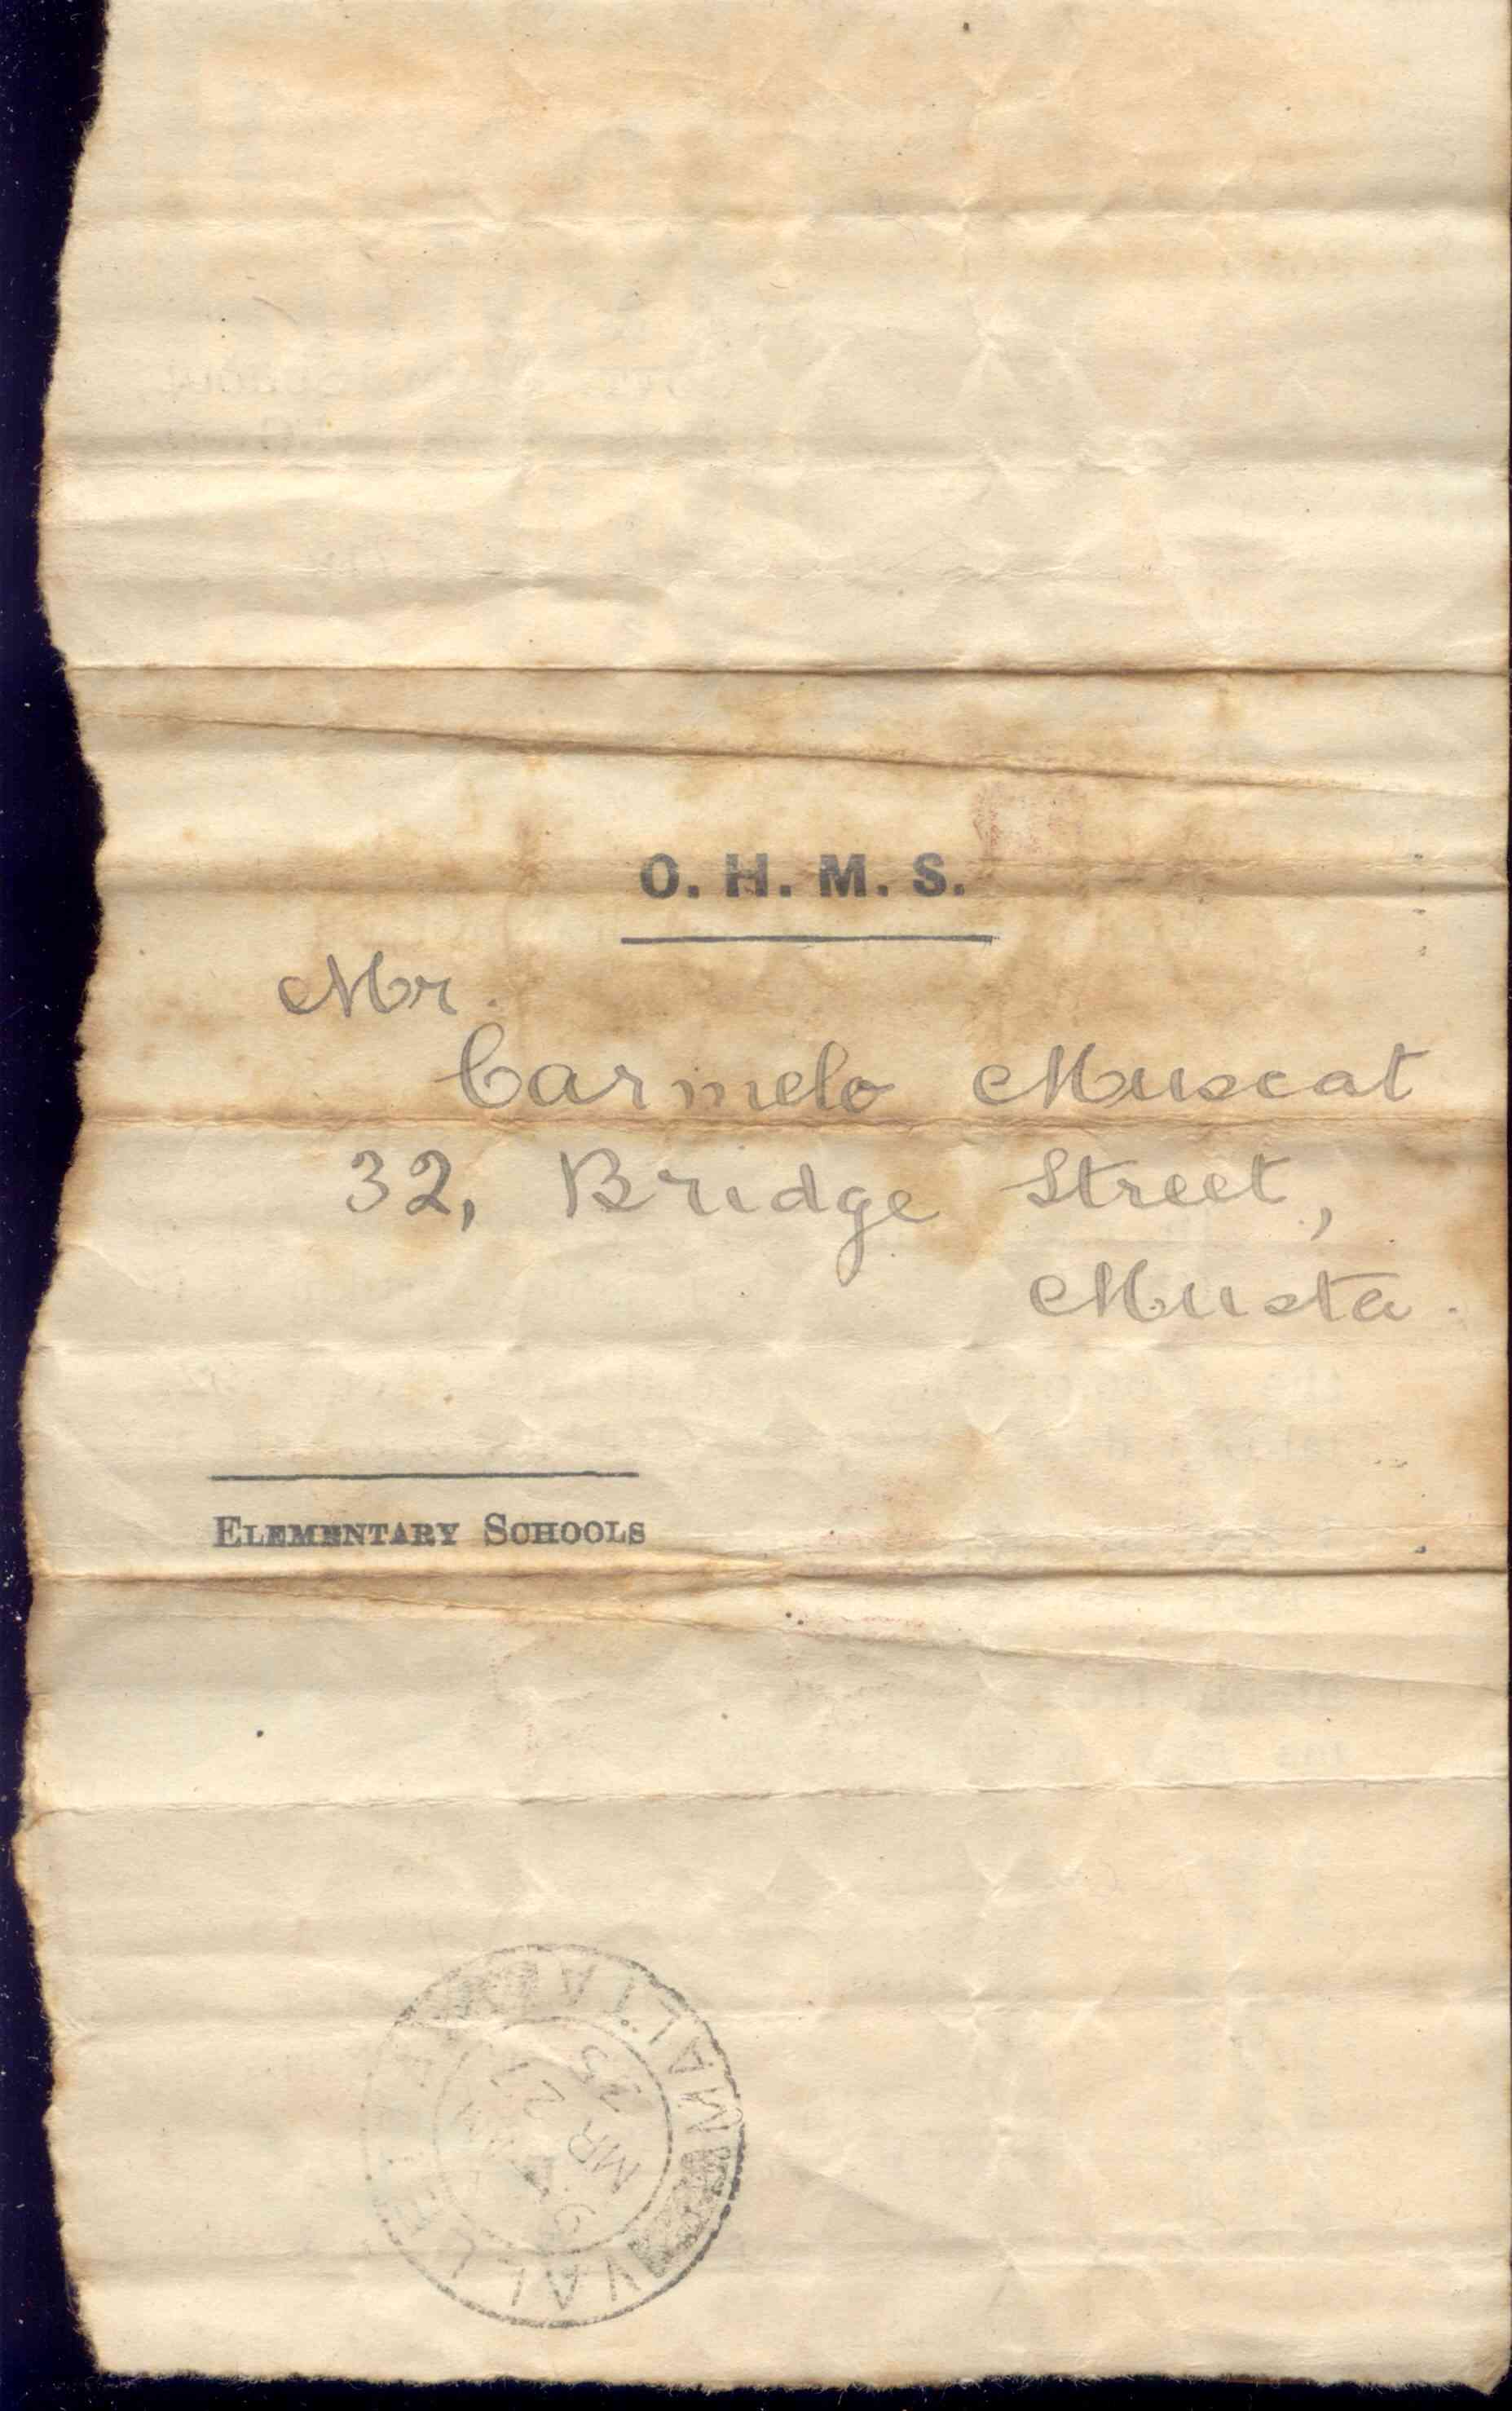 O. H. M. S.
Mr.
Carmelo Muscat
32, Bridge Street,
Musta.
ELEMENTARY SCHOOLS
VALLETTA MALTA
MR 27
35